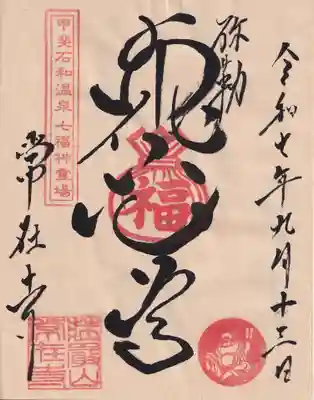 令和七年九月十三日
弥勒
布袋尊
福
甲斐石和温泉七福神霊場
常在寺